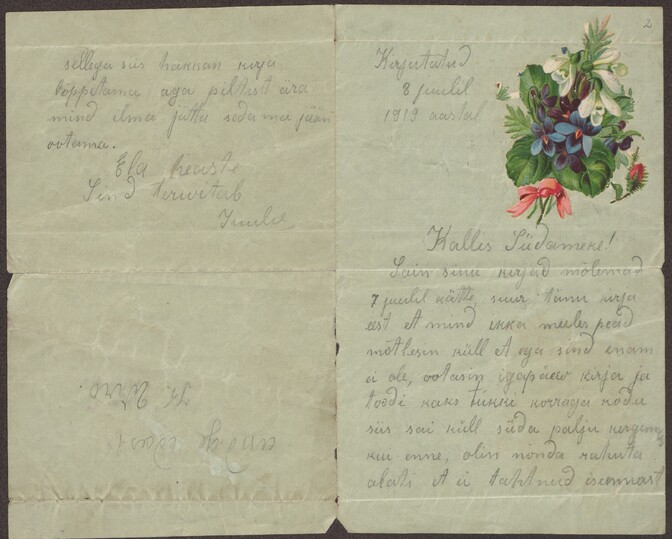 2
Kirjutatud
8 juulil
1919 aastal
Kallis Südameke!
Sain sinu kirjad mõlemad
7 juulil kätte, suur tänu kirja
eest et mind ikka meeles pead
mõtlesin küll et ega sind enam
ei ole, ootasin igapäew kirja ja
toodi kaks tükki korraga kodu
siis sai küll süda palju kergem
kui enne, olin nõnda rahuta
alati et ei tahtnud iseennast
sellega siis hakkan kirja
lõppetama aga piltist ära
mind ilma jätta seda ma jään
ootama.
Ela heaste
Sind terwitab